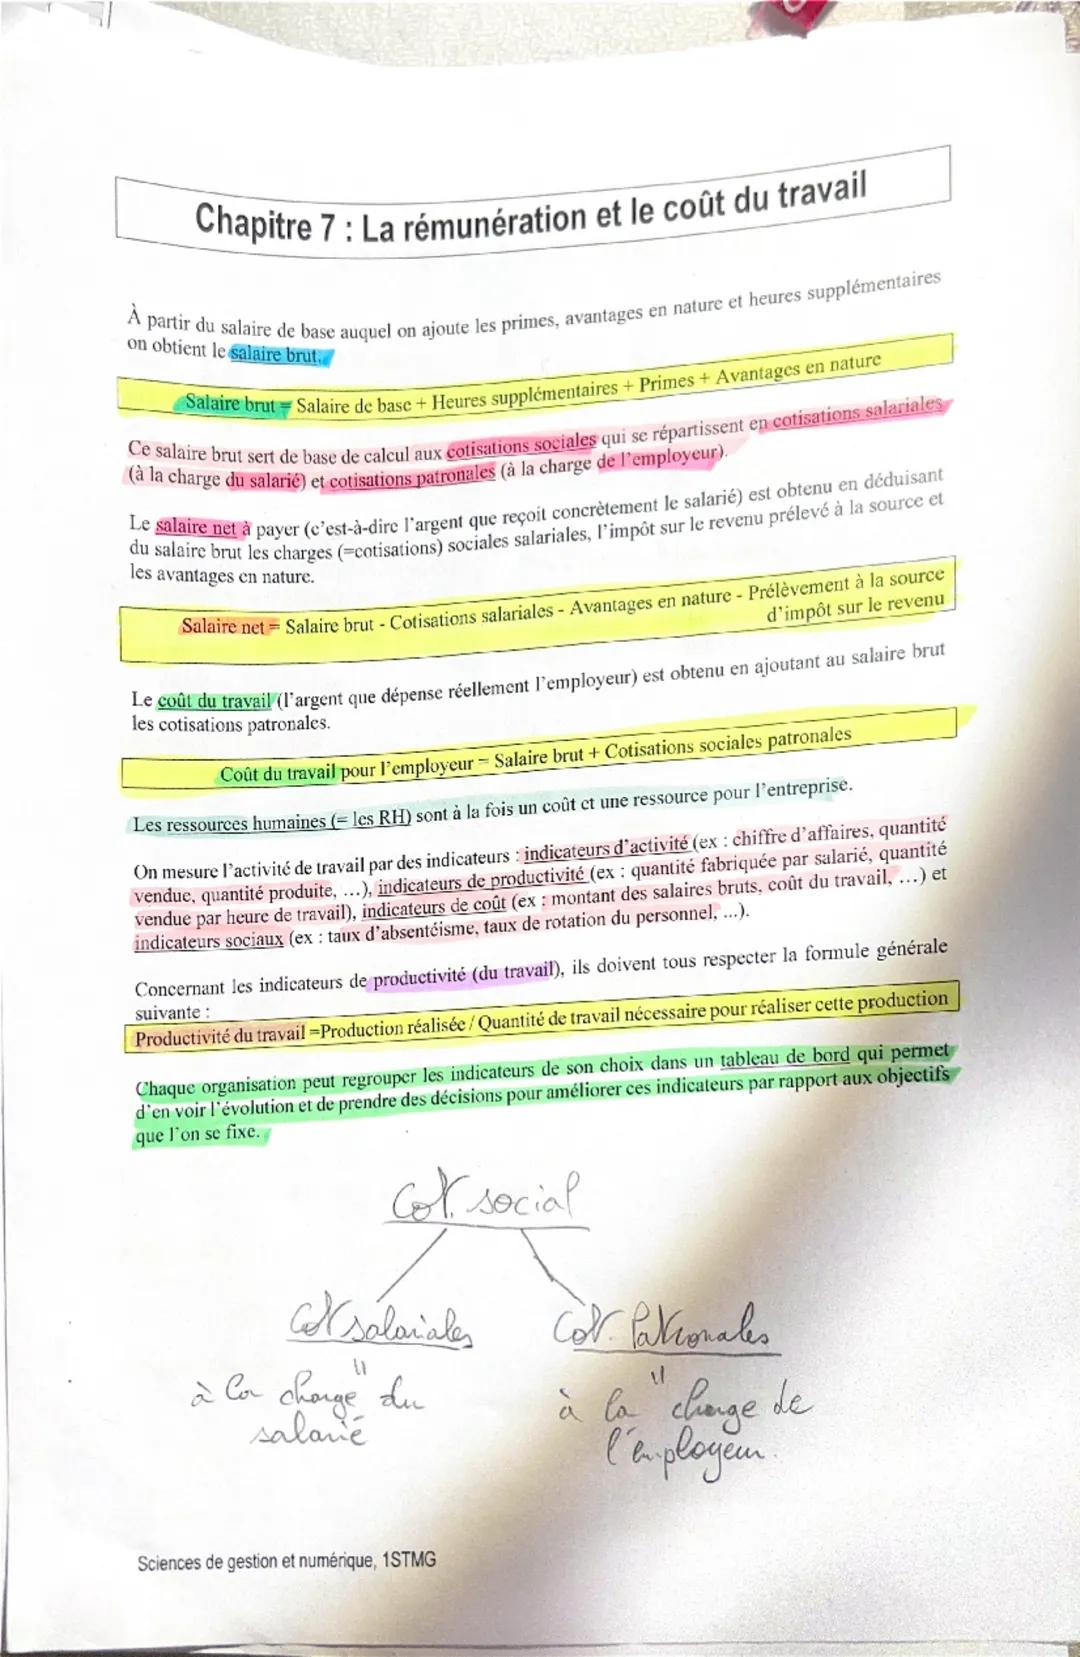 Chapitre 7 : La rémunération et le coût du travail
À partir du salaire de base auquel on ajoute les primes, avantages en nature et heures supplémentaires
on obtient le salaire brut.
Salaire brut = Salaire de base + Heures supplémentaires + Primes + Avantages en nature
Ce salaire brut sert de base de calcul aux cotisations sociales qui se répartissent en cotisations salariales
(à la charge du salarié) et cotisations patronales (à la charge de l'employeur).
Le salaire net à payer (c'est-à-dire l'argent que reçoit concrètement le salarié) est obtenu en déduisant
du salaire brut les charges (=cotisations) sociales salariales, l'impôt sur le revenu prélevé à la source et
les avantages en nature.
Salaire net = Salaire brut - Cotisations salariales - Avantages en nature - Prélèvement à la source
d'impôt sur le revenu
Le coût du travail (l'argent que dépense réellement l'employeur) est obtenu en ajoutant au salaire brut
les cotisations patronales.
Coût du travail pour l'employeur = Salaire brut + Cotisations sociales patronales
Les ressources humaines (= les RH) sont à la fois un coût et une ressource pour l'entreprise.
On mesure l'activité de travail par des indicateurs : indicateurs d'activité (ex : chiffre d'affaires, quantité
vendue, quantité produite, …), indicateurs de productivité (ex : quantité fabriquée par salarié, quantité
vendue par heure de travail), indicateurs de coût (ex : montant des salaires bruts, coût du travail, …) et
indicateurs sociaux (ex : taux d'absentéisme, taux de rotation du personnel, ...).
Concernant les indicateurs de productivité (du travail), ils doivent tous respecter la formule générale
suivante :
Productivité du travail =Production réalisée / Quantité de travail nécessaire pour réaliser cette production
Chaque organisation peut regrouper les indicateurs de son choix dans un tableau de bord qui permet
d'en voir l'évolution et de prendre des décisions pour améliorer ces indicateurs par rapport aux objectifs
que l'on se fixe.
Cot. social
Cot salariales Cot. Patronales
" "
à la charge du à la charge de
salarié l'employeur.
Sciences de gestion et numérique, 1STMG